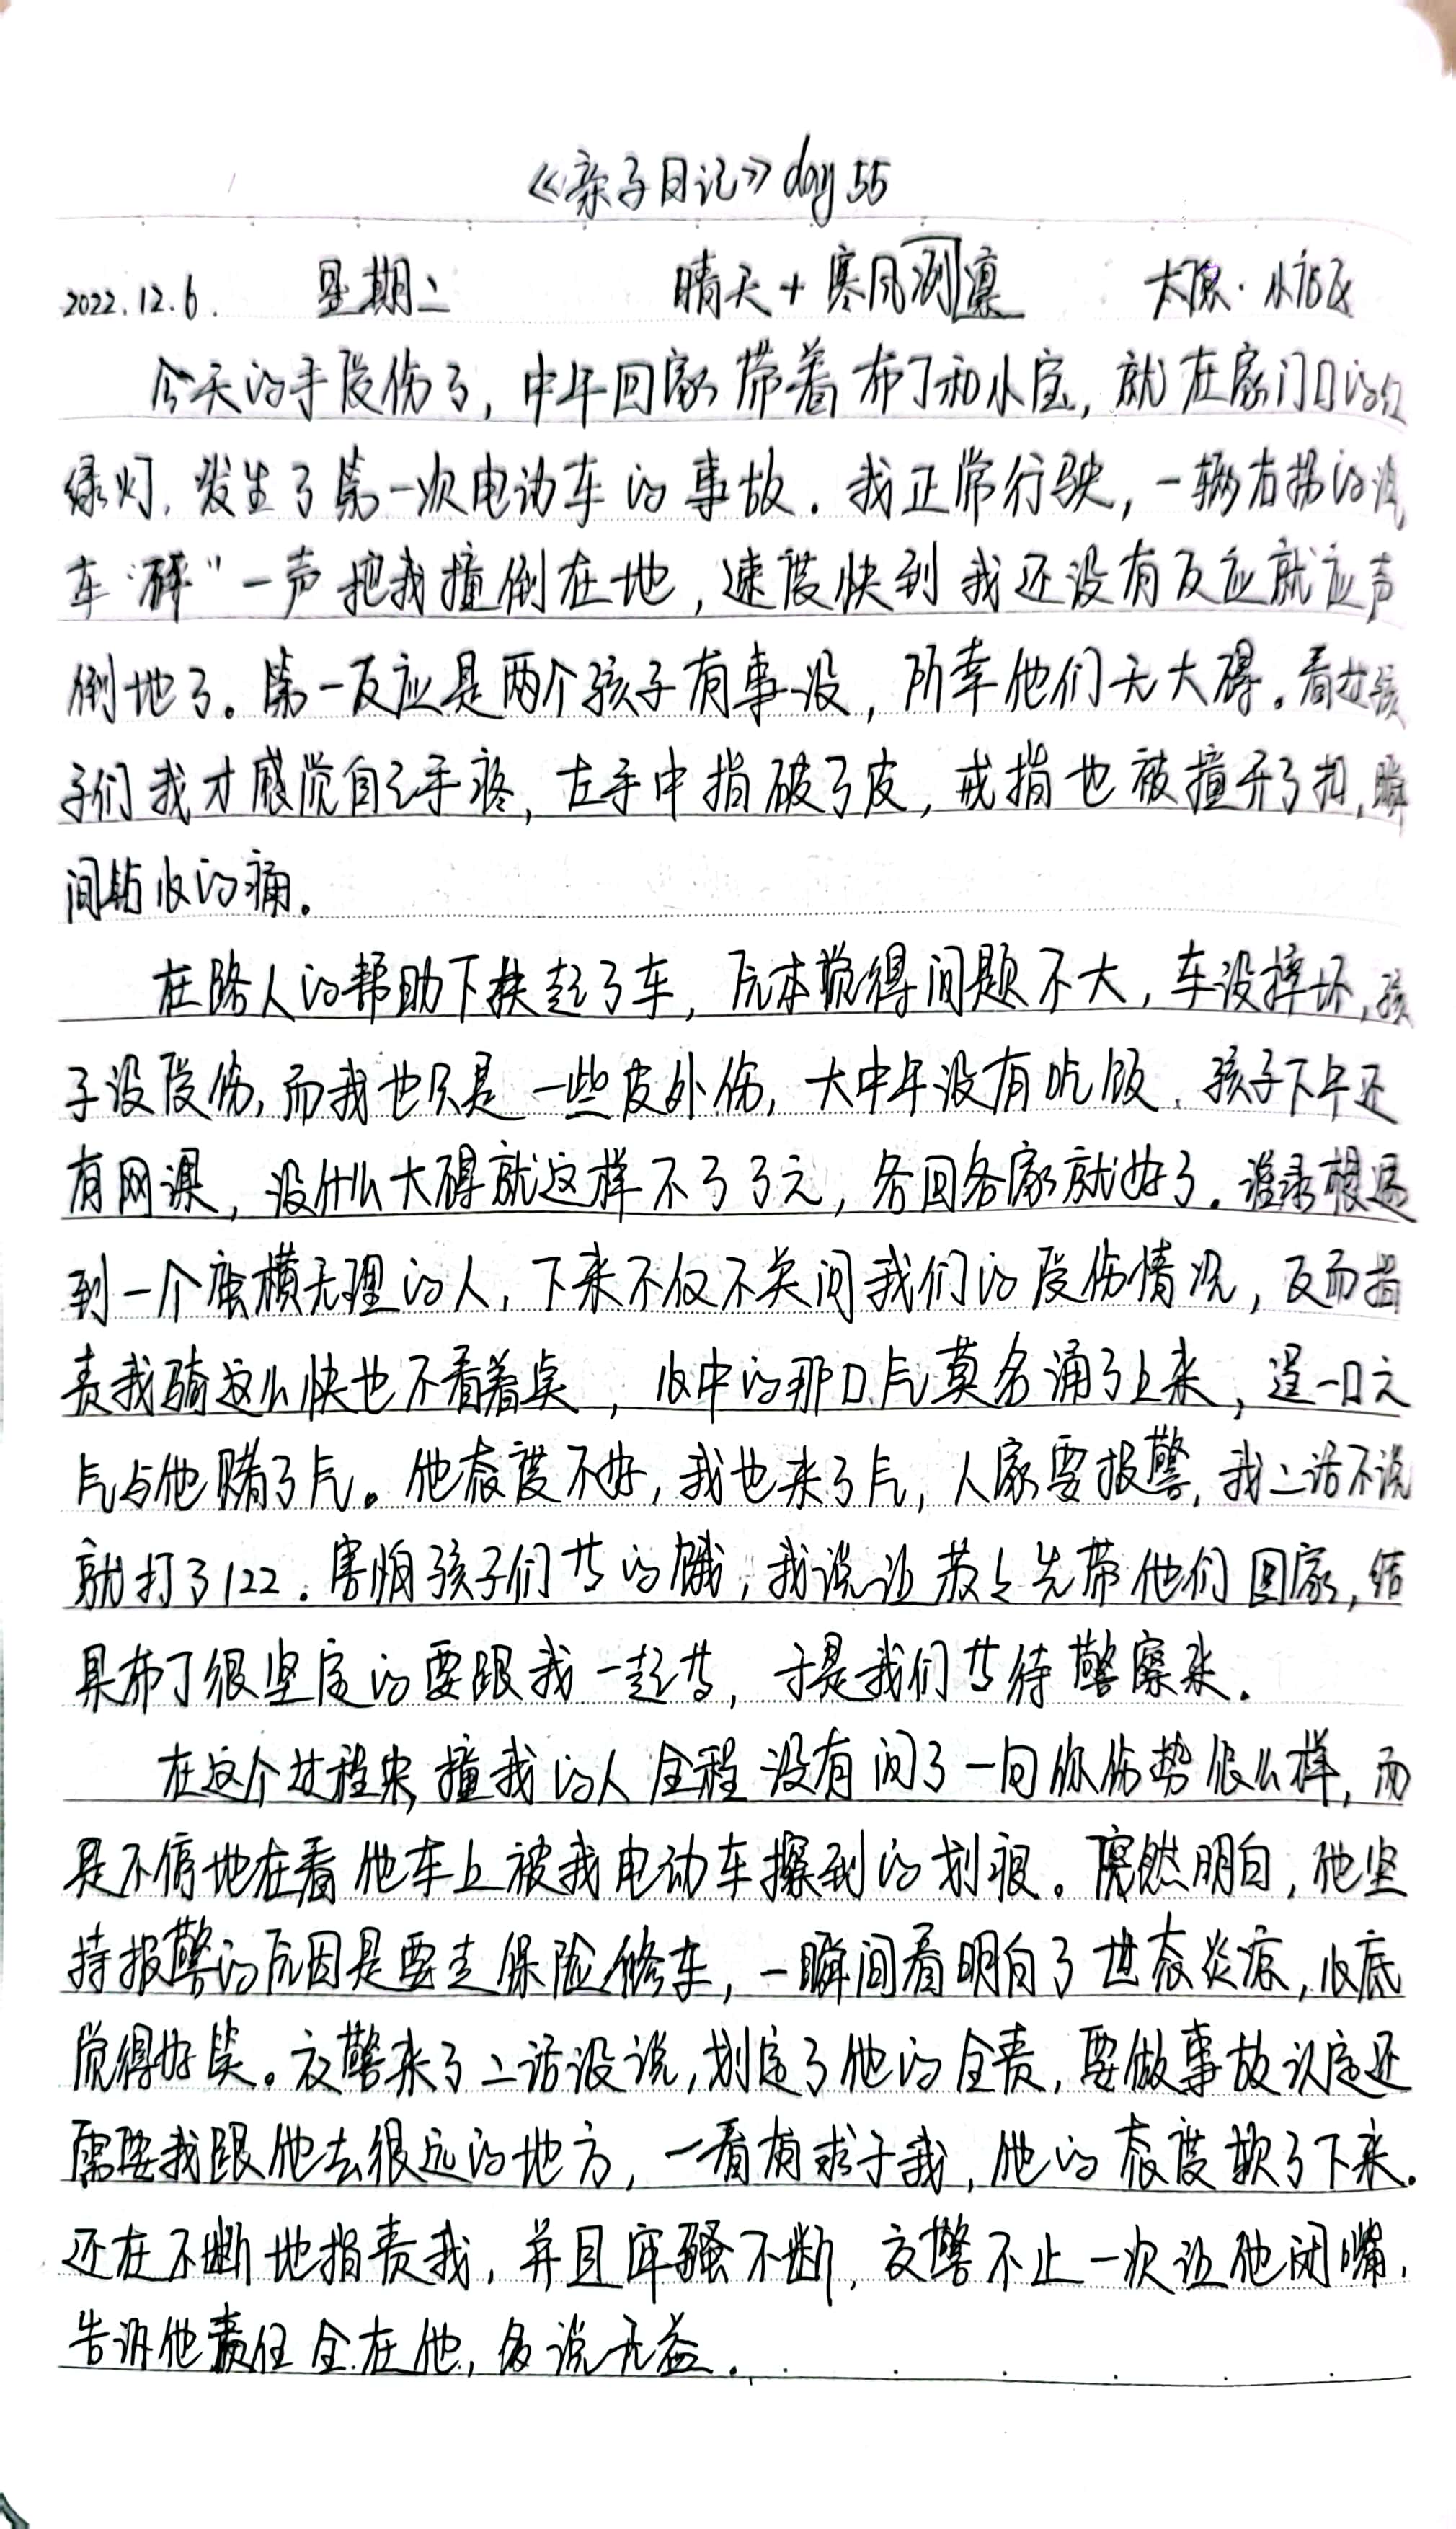 《亲子日记》day 55
2022.12.6. 星期二 晴天+寒风冽凛 太原·小店区
今天的手受伤了，中午回家带着布丁和小宝，就在家门口的红
绿灯，发生了第一次电动车的事故。我正常行驶，一辆右拐的汽
车“砰”一声把我撞倒在地，速度快到我还没有反应就应声
倒地了。第一反应是两个孩子有事没，所幸他们无大碍。看过孩
子们我才感觉自己手疼，左手中指破了皮，戒指也被撞开了扣，瞬
间钻心的痛。
在路人的帮助下扶起了车，原本觉得问题不大，车没摔坏，孩
子没受伤，而我也只是一些皮外伤，大中午没有吃饭，孩子下午还
有网课，没什么大碍就这样不了了之，各回各家就好了。谁承想遇
到一个蛮横无理的人，下来不仅不关问我们的受伤情况，反而指
责我骑这么快也不看着点，心中的那口气莫名涌了上来，逞一口之
气与他赌了气。他态度不好，我也来了气，人家要报警，我二话不说
就打了122。害怕孩子们等的饿，我说让莜莜先带他们回家，结
果布丁很坚定的要跟我一起等，于是我们等待警察来。
在这个过程中，撞我的人全程没有问了一句你伤势怎么样，而
是不停地在看他车上被我电动车擦到的划痕。突然明白，他坚
持报警的原因是要走保险修车，一瞬间看明白了世态炎凉，心底
觉得好笑。交警来了二话没说，划定了他的全责，要做事故认定还
需要我跟他去很远的地方，一看有求于我，他的态度软了下来。
还在不断地指责我，并且牢骚不断，交警不止一次让他闭嘴，
告诉他责任全在他，多说无益。